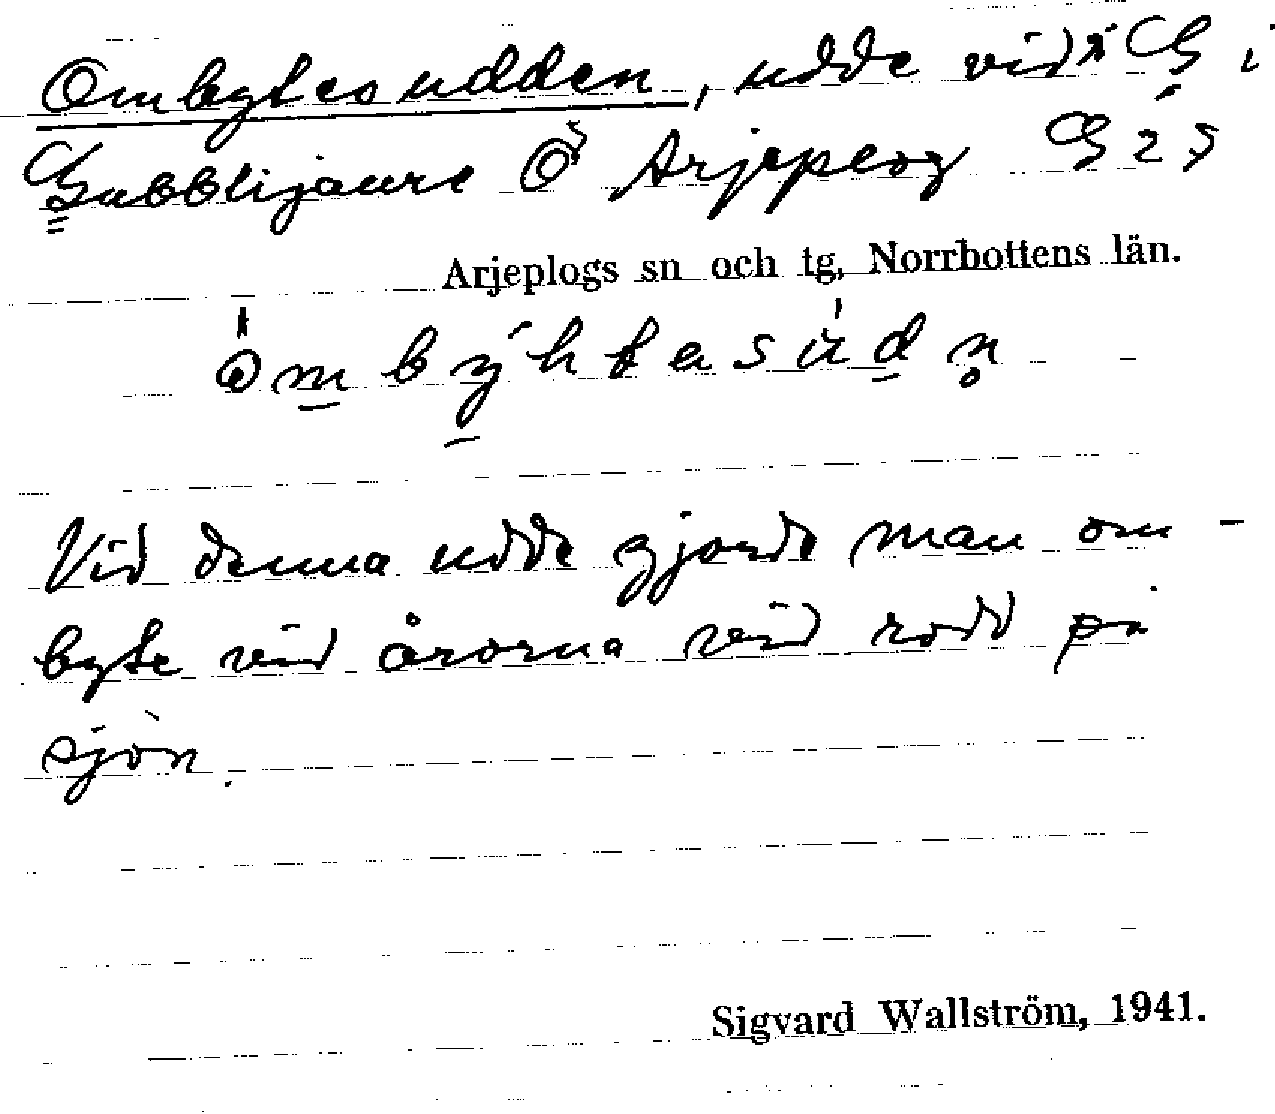 Ombytesudden, udde vid G i
Gubblijaure Ö Arjeplog G 2 S
Arjeplogs sn och tg, Norrbottens län.
Vid denna udde gjorde man om-
byte vid årorna vid rodd på
sjön.
Sigvard Wallström, 1941.